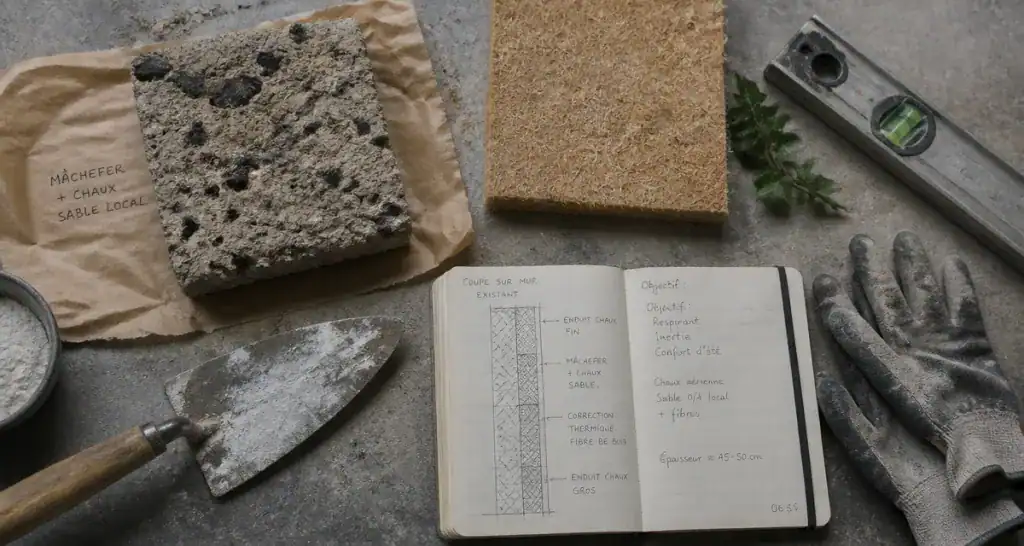 MÂCHEFER
+ CHAUX
SABLE LOCAL
COUPE SUR MUR
EXISTANT
ENDUIT CHAUX
FIN
MÂCHEFER
+ CHAUX
SABLE.
CORRECTION
THERMIQUE
FIBRE DE BOIS
ENDUIT CHAUX
GROS
Objectif :
Objectif :
Respirant
Inertie
Confort d'été
Chaux aérienne
Sable 0/4 local
+ fibres
Épaisseur = 45-50 cm